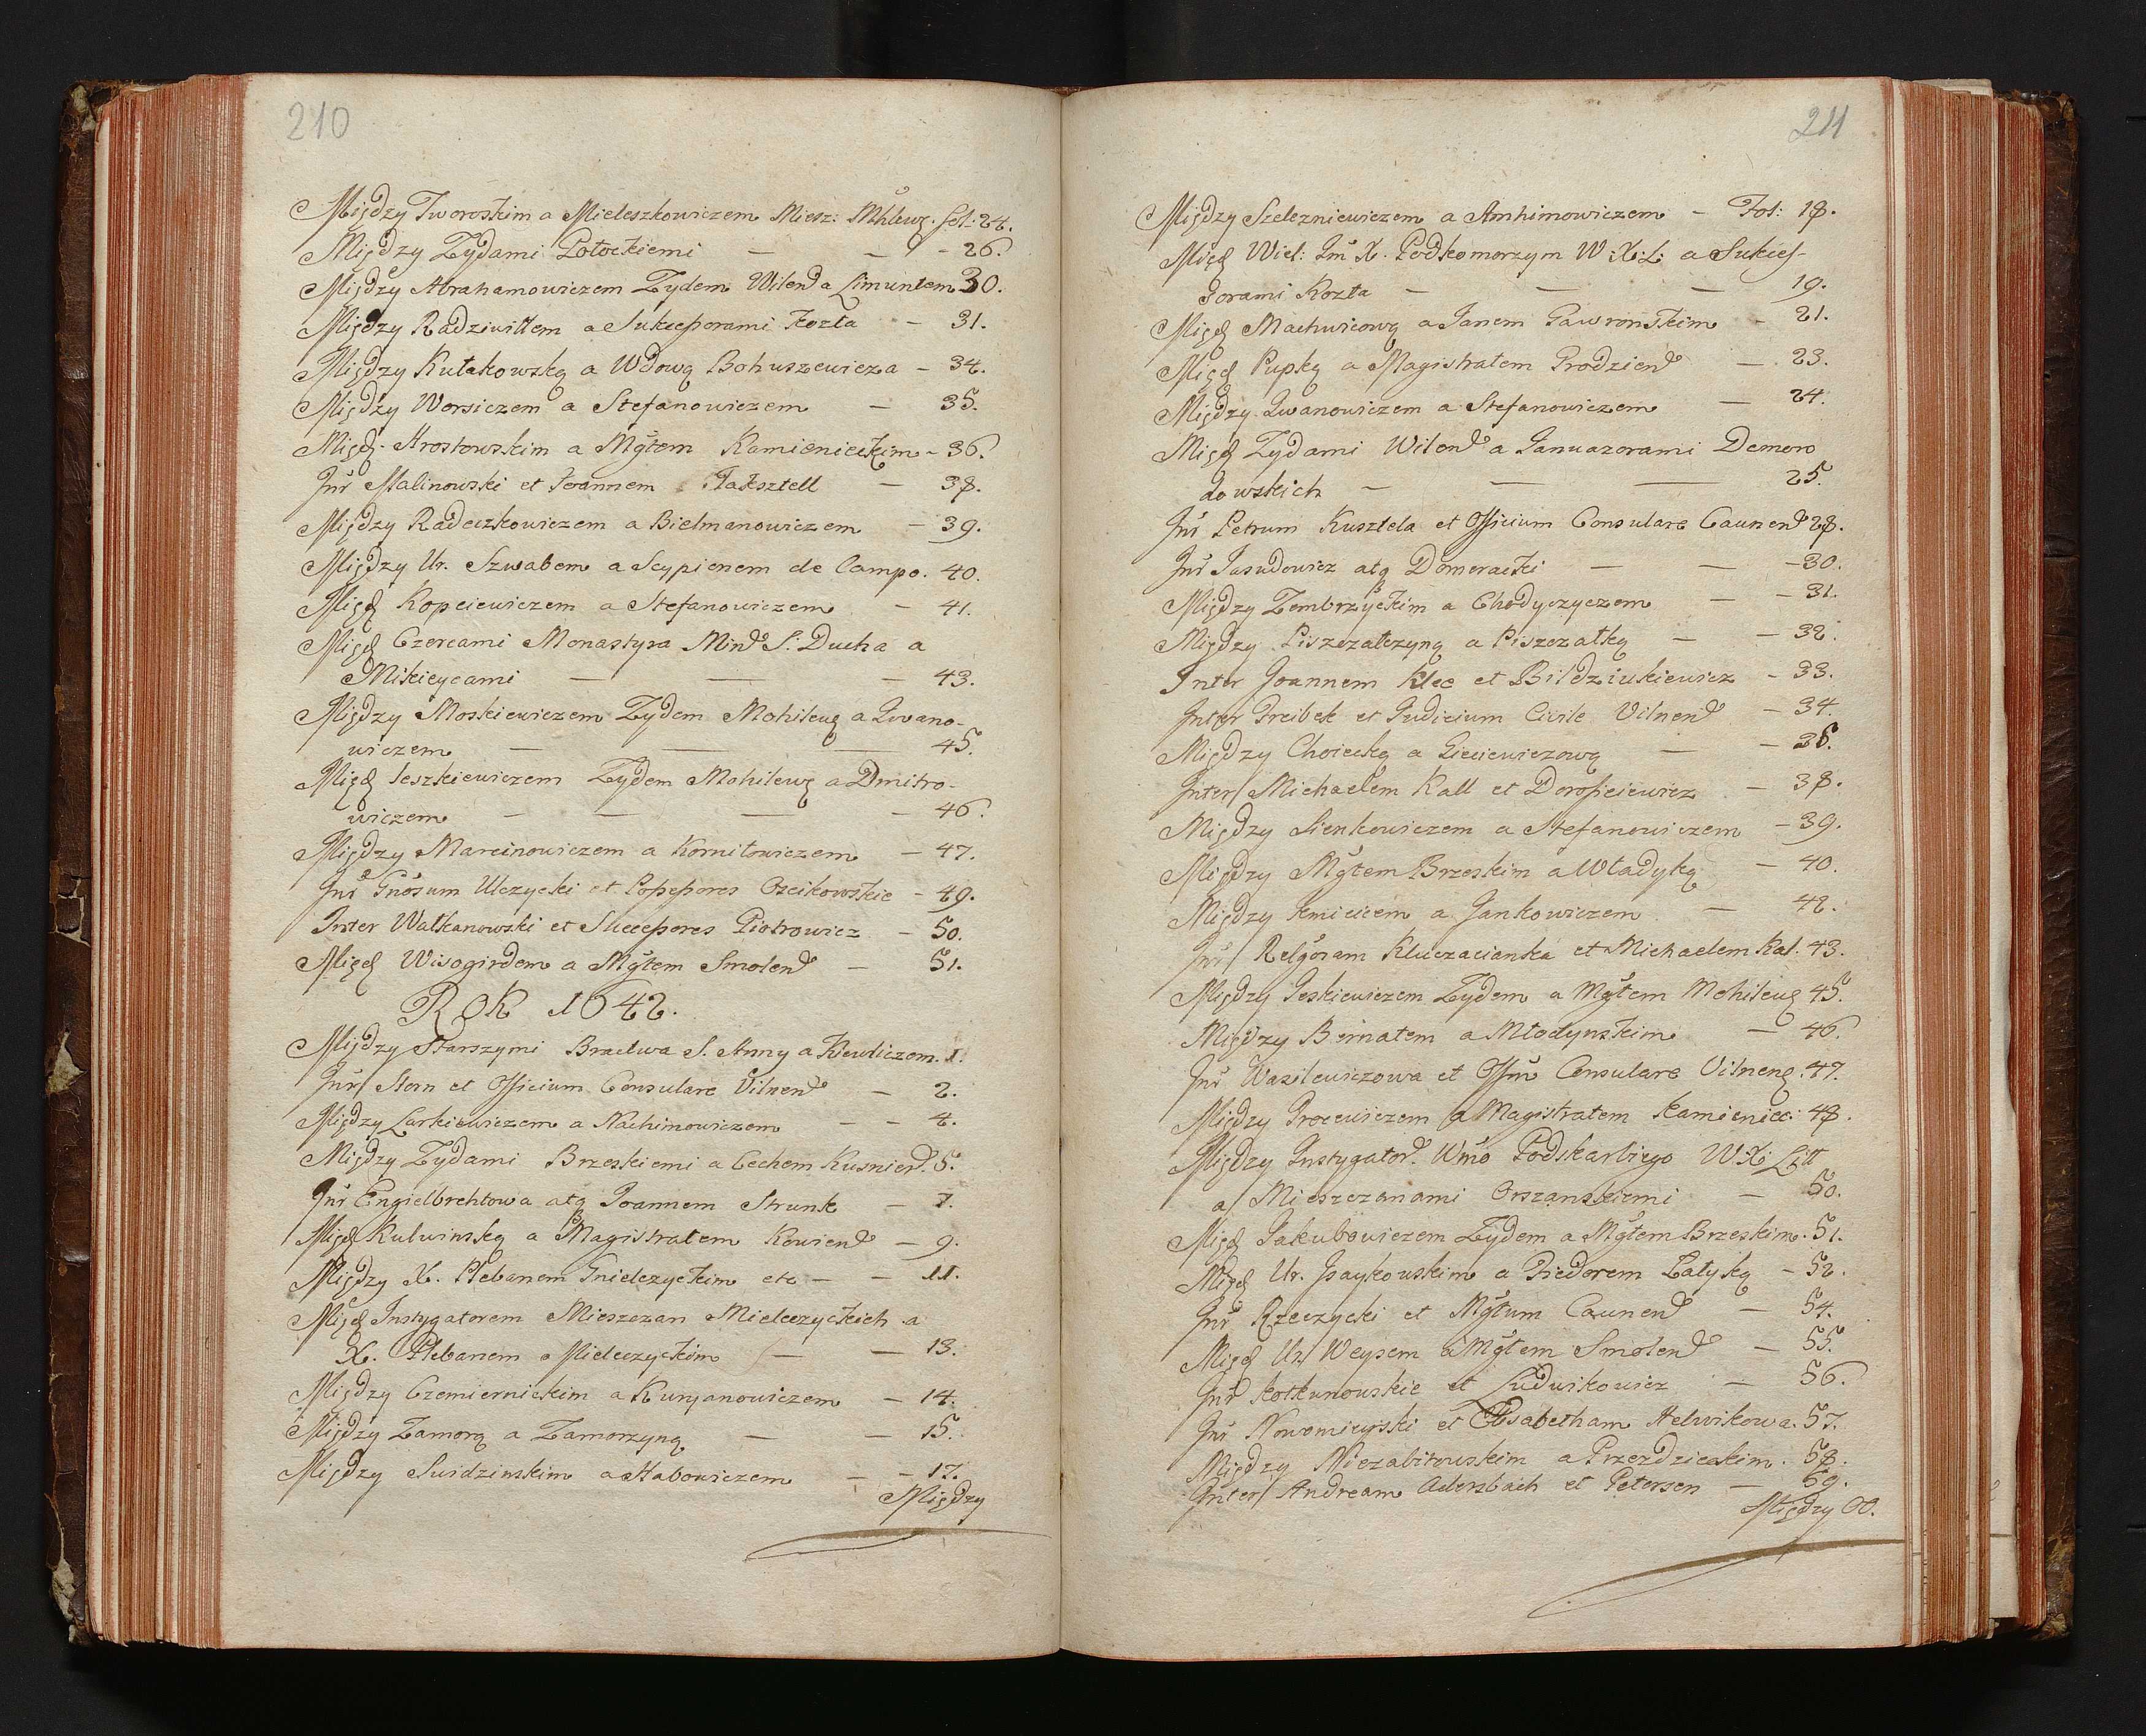 210
Między Tworoskim a Mieleszkowiczem Miesz: Mhlewg. fol: 24.
Między Żydami Połockiemi — — - 26.
Między Abrahamowiczem Żydem Wilend a Limuntem 30.
Między Radziwiłłem a Sukcessorami Kozła — 31.
Między Kułakowską a Wdową Bohuszewicza — 34.
Między Worsiczem a Stefanowiczem — 35.
Międ. Hrostowskim a Mgtem Kamienieckim - 36.
Jnr Malinowski et Joannem Taksztell — 38.
Między Radeczkowiczem a Bielmanowiczem — 39.
Między Ur. Szwabem a Scypionem de Campo. 40.
Międ Kopciewiczem a Stefanowiczem — 41.
Międ Czercami Monastyra Mind S. Ducha a
Mikicycami — — — 43.
Między Moskiewiczem Żydem Mohilewg a Jwano-
wiczem — — — 45.
Międ Jeszkiewiczem Żydem Mohilewg a Dmitro-
wiczem — — — — 46.
Między Marcinowiczem a Kornitowiczem — 47.
Jnr Gnosum Ulczycki et Possessores Oscikowskie - 49.
Inter Watkanowski et Successores Piotrowicz — 50.
Międ Wisogirdem a Mgtem Smolend — 51.
ROK 1642.
Między Starszymi Bractwa S. Anny a Kiewliczem. 1.
Jnr Horn et Officium Consulare Vilnend — 2.
Między Larkiewiczem a Nachimowiczem — — 4.
Między Żydami Brzeskiemi a Cechem Kusnierd. 5.
Jnr Engielbrehtowa atq Joannem Strunk — 7.
Międ Kulwinską a Magistratem Kowiend — 9.
Między X. Plebanem Gnielczyckim etc — — 11.
Międ Instygatorem Mieszczan Mielczyckich a
X. Plebanem Mieleczyckim — — 13.
Między Czemiernickim a Kuryanowiczem — 14.
Między Zamorą a Zamorzyną — — 15.
Między Suidzinskim a Habowiczem — - 17.
Między
211
Między Szelezniewiczem a Amhimowiczem — Fol: 18.
Międ Wiel: Jm X. Podkomorzym W. X. L. a Sukces-
sorami Kozła — — — 19.
Międ Machwicową a Janem Gawronskim - 21.
Międ Pupką a Magistratem Grodziend — 23.
Między Jwanowiczem a Stefanowiczem — 24.
Międ Żydami Wilend a Januazorami Demoro
dowskich — — — 25.
Jnr Petrum Kusztela et Officium Consulare Caunend 28.
Jnr Jasudowicz atq Domeracki — — - 30.
Między Zembrzyckim a Chodyczyczem — - 31.
Między Piszczałczyną a Piszczałką — - 32.
Inter Joannem Klee et Bildziukiewicz - 33.
Inter Greibek et Judicium Civile Vilnend - 34.
Między Choiecką a Gieciewiczową — - 36.
Inter Michaelem Kall et Dorofieiewicz — 38.
Między Sienkowiczem a Stefanowiczem - 39.
Między Mgtem Brzeskim a Władyką — 40.
Między Kmicicem a Jankowiczem — 42.
Jnr Relgosam Kluczacianka et Michaelem Kal. 43.
Między Jeskiewiczem Żydem a Mgtem Mohilewg 45.
Między Bernatem a Młodynskim — 46.
Jnr Wazilewiczowa et Offm Consulare Vilneng. 47.
Między Procewiczem a Magistratem Kamieniec: 48.
Między Instygatord. Wmo Podskarbiego W. X: Litt
a Mieszczanami Orszanskiemi — 50.
Międ Jakubowiczem Żydem a Mgtem Brzeskim. 51.
Międ Ur. Isaykowskim a Fiedorem Łatyką - 52.
Jnr Rzeczycki et Mgtum Caunend — 54.
Międ Ur. Weysem a Mgtem Smolend — 55.
Jnr Kotkunowskie et Ludwikowicz — 56.
Jnr Nowomieyski et Elisabetham Helwikowa. 57.
Między Niezabitowskim a Przezdzieckim. 58.
Inter Andream Adersbach et Petersen — 59.
Między 60.